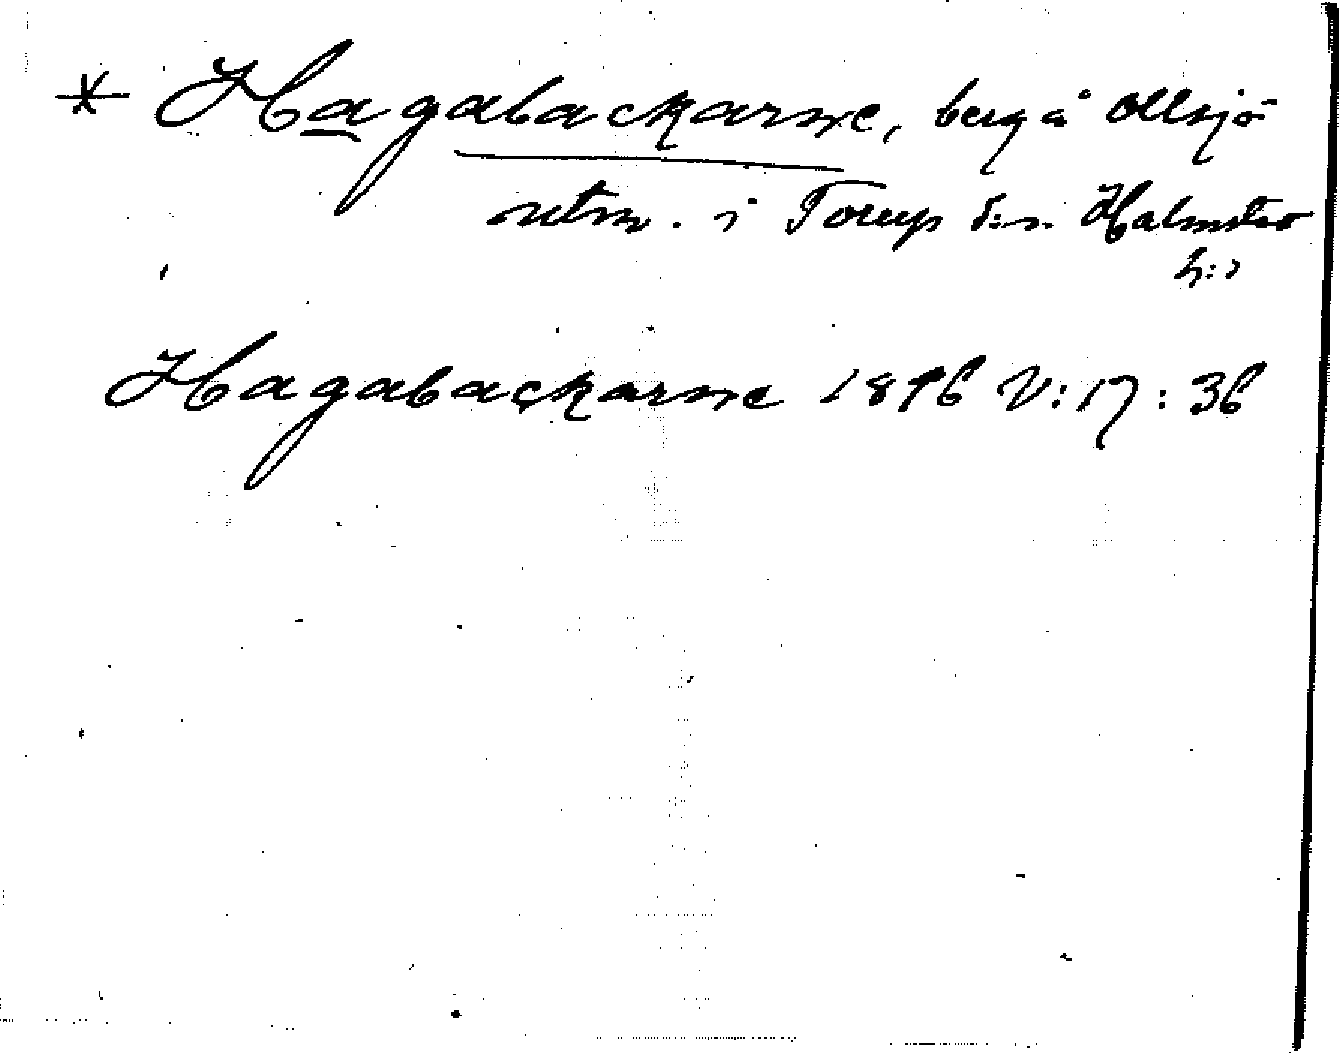 * Hagabackarne, berg å Allsjö
utm. i Torup s:n. Halmstad
h:d
Hagabackarne 1896 V:17:36